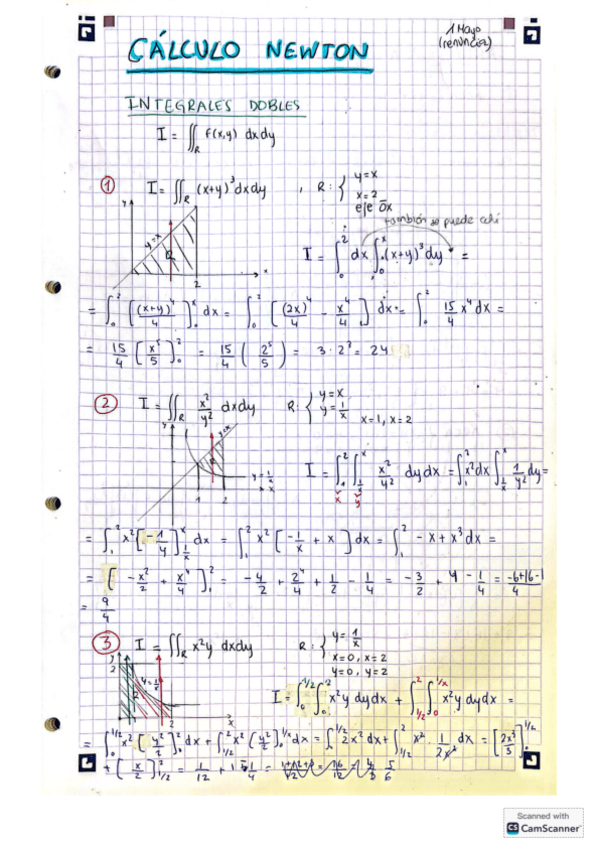 1 Mayo
(renuncia)
CÁLCULO NEWTON
INTEGRALES DOBLES
I = ∬_R f(x,y) dxdy
① I = ∬_R (x+y)³dxdy , R: { y=x
x=2
eje Ox
también se puede
y y=x R 2 x
I = ∫₀² dx ∫₀ˣ (x+y)³ dy =
= ∫₀² [(x+y)⁴/4]₀ˣ dx = ∫₀² [(2x)⁴/4 - x⁴/4] dx = ∫₀² 15/4 x⁴ dx =
= 15/4 [x⁵/5]₀² = 15/4 (2⁵/5) = 3·2³ = 24
② I = ∬_R x²/y² dxdy R: { y=x
y=1/x
x=1, x=2
y y=x R y=1/x 1 2 x
I = ∫₁² ∫_{1/x}^x x²/y² dy dx = ∫₁² x² dx ∫_{1/x}^x 1/y² dy =
x y
= ∫₁² x² [-1/y]_{1/x}^x dx = ∫₁² x² [-1/x + x] dx = ∫₁² -x + x³ dx =
= [-x²/2 + x⁴/4]₁² = -4/2 + 2⁴/4 + 1/2 - 1/4 = -3/2 + 4 - 1/4 = (-6+16-1)/4
= 9/4
③ I = ∬_R x²y dxdy R: { y=1/x
x=0, x=2
y=0, y=2
y 2 y=1/x R 2 x
I = ∫₀^{1/2} ∫₀² x²y dy dx + ∫_{1/2}^2 ∫₀^{1/x} x²y dy dx =
= ∫₀^{1/2} x² [y²/2]₀² dx + ∫_{1/2}^2 x² [y²/2]₀^{1/x} dx = ∫₀^{1/2} 2x² dx + ∫_{1/2}^2 x² · 1/2x² dx = [2x³/3]₀^{1/2}
+ [x/2]_{1/2}^2 = 1/12 + 1 - 1/4 = 5/6
Scanned with
CS CamScanner